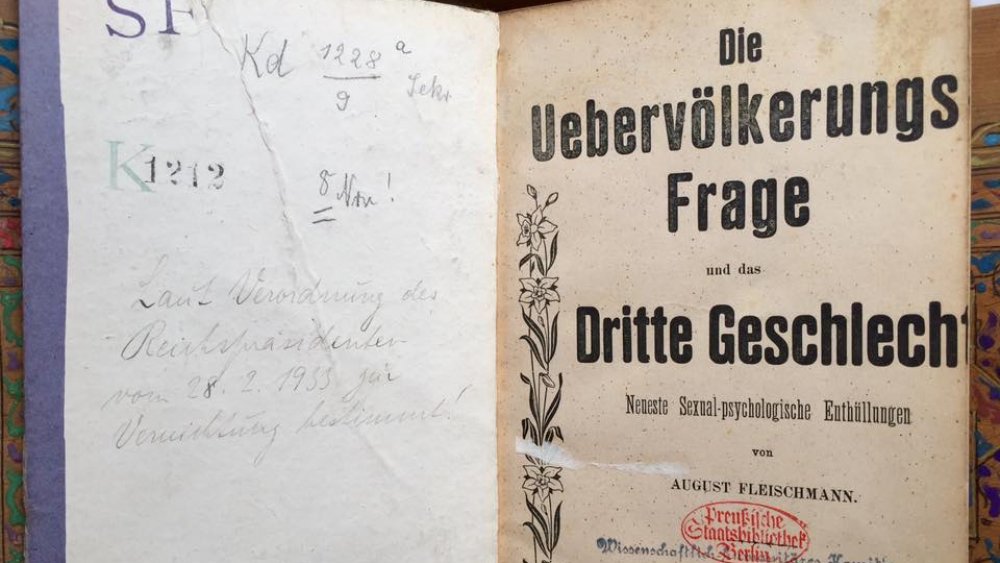 SF
Kd 1228 a
9
Sekr
K 1212
8 Nrn!
Laut Verordnung des
Reichspräsidenten
vom 28. 2. 1933 zur
Vernichtung bestimmt!
Die
Uebervölkerungs
Frage
und das
Dritte Geschlecht
Neueste Sexual-psychologische Enthüllungen
von
AUGUST FLEISCHMANN.
Preußische
Staatsbibliothek
Berlin
Wissenschaftlich